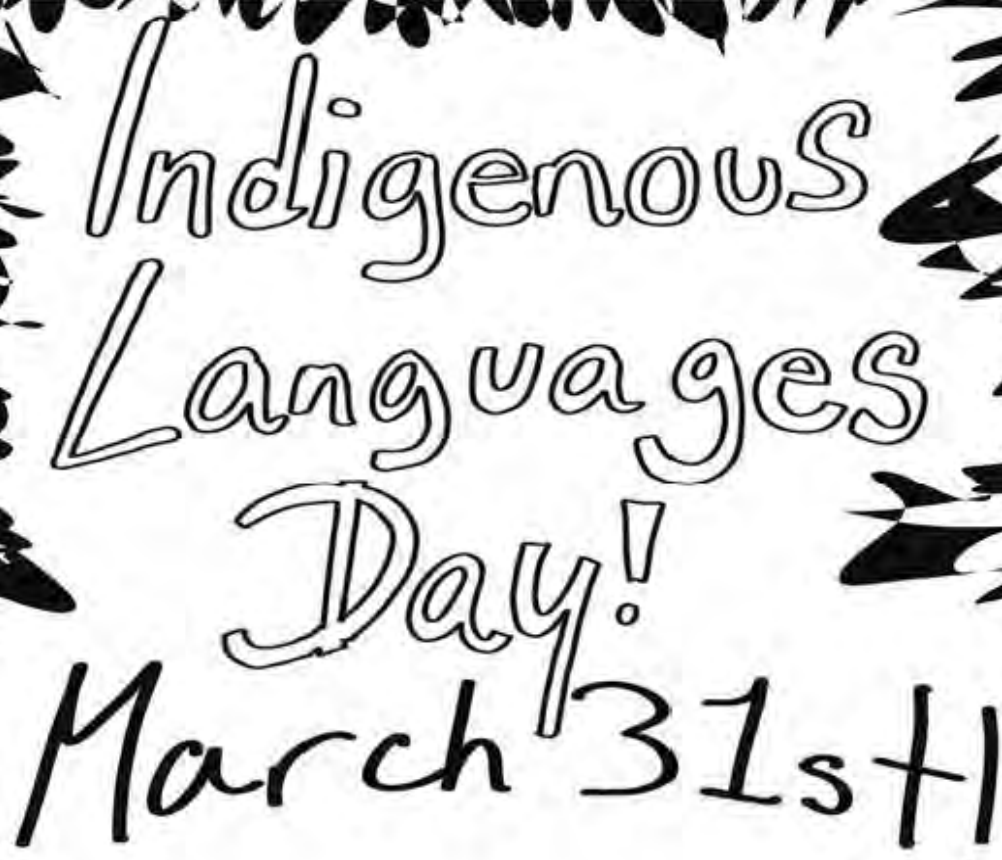 Indigenous
Languages
Day!
March 31st!